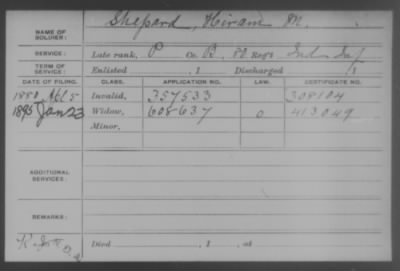 NAME OF SOLDIER: Shepard, Hiram M.
SERVICE: Late rank, P Co. B, 80 Reg't Ind Inf
TERM OF SERVICE: Enlisted , 1 Discharged , 1
DATE OF FILING. CLASS. APPLICATION NO. LAW. CERTIFICATE NO.
1880 Apl 5 Invalid, 357533 308104
1895 Jan 23 Widow, 608637 0 413049
Minor,
ADDITIONAL SERVICES:
REMARKS:
Died , 1 , at